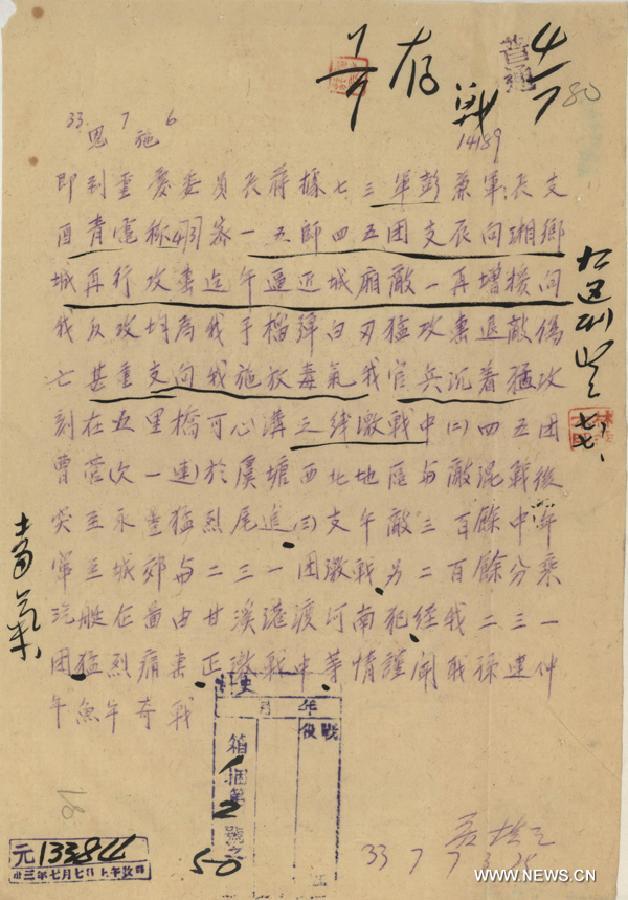 普通
存
戰
80
33 7 6
恩施
14189
即到重慶委員長蔣據七三軍彭兼軍長支
酉青電稱 一五師四五团支辰向湘鄉
城再行攻擊迄午逼近城廂敵一再增援向
我反攻均爲我手榴彈白刃猛攻擊退敵傷
亡甚重支向我施放毒氣我官兵沉着猛攻
刻在五里橋可心溝之线激戰中(二)四五团
曹營(次一連)於虞塘西北地區与敵混戰後
突至永豐猛烈尾進(三)支午敵三百餘
窜至城郊与二三一团激戰另二百餘分乘
汽艇 由甘溪港渡河南犯经我二三一
团猛烈痛擊正激戰中等情謹聞職孫連仲
午魚午奇戰
毒氣
戰役
年 月
箱捆第 號之
12
50
元13384
卅三年七月七日上午收
33 7 7
WWW.NEWS.CN